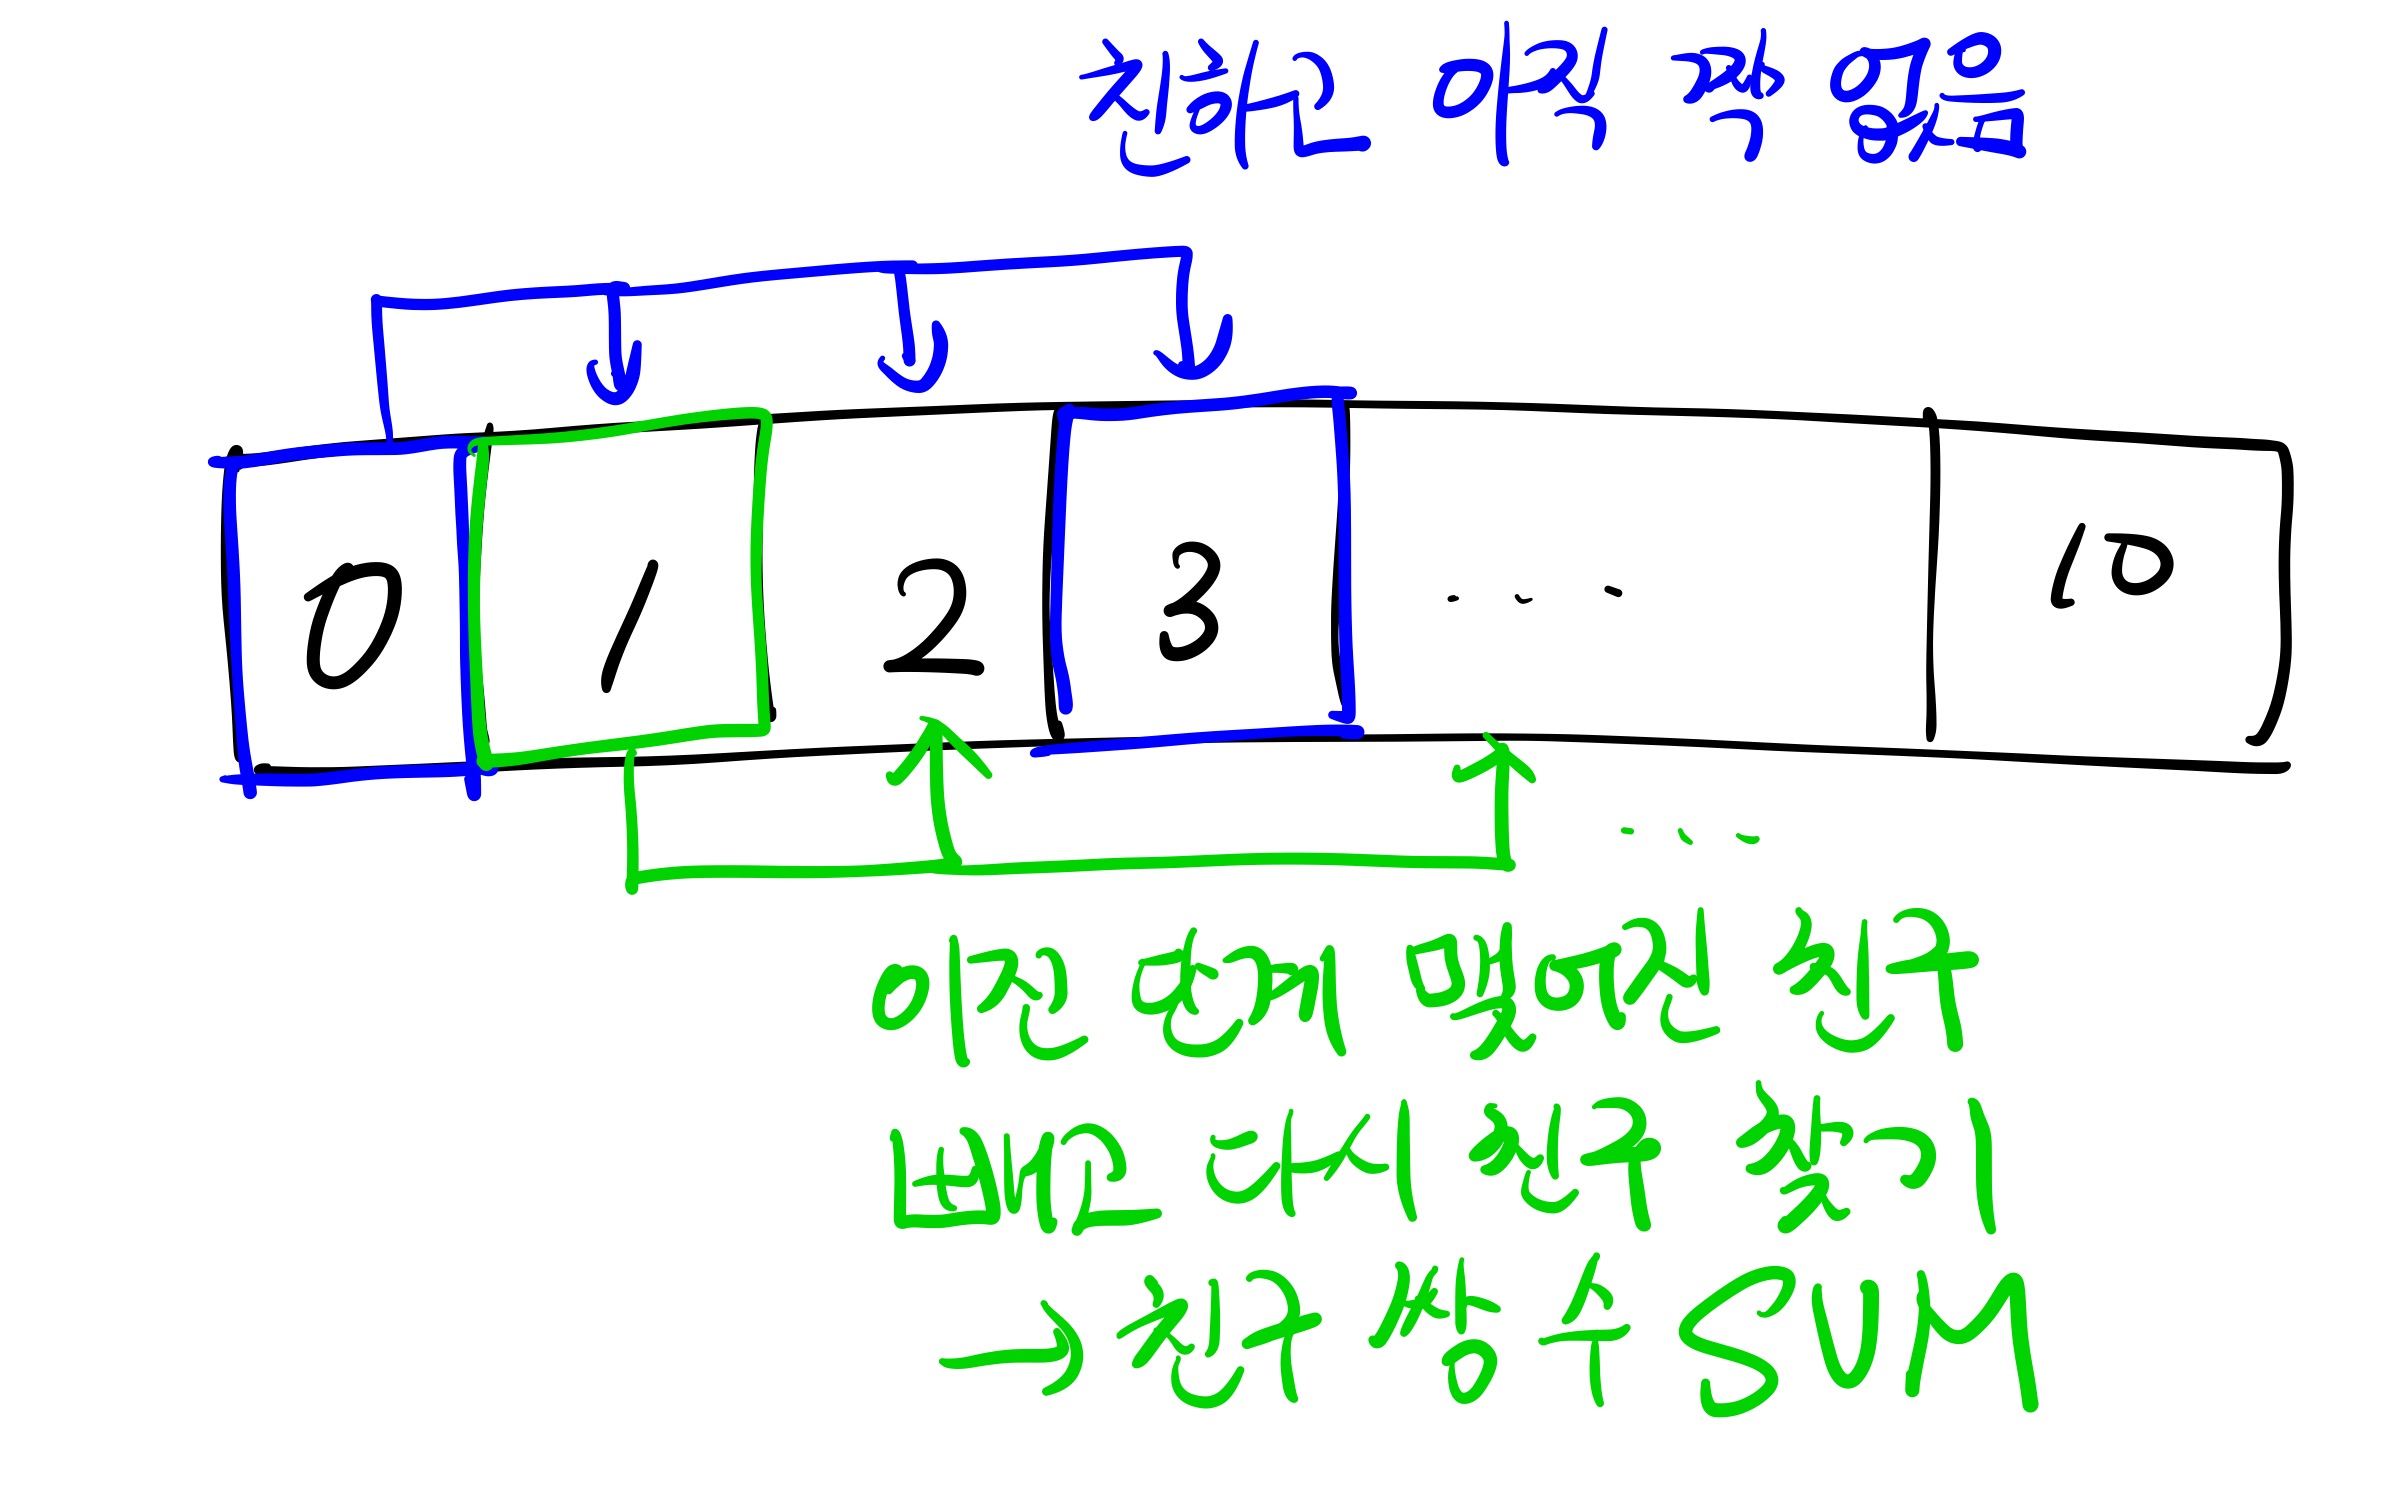 친하고 아직 짝 없음
0 1 2 3 ... 10
...
이전 단계 맺어진 친구
빼고 다시 친구 찾기
→ 친구 쌍 수 SUM